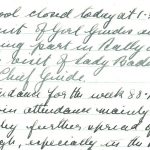 ool closed today at 1-3
nt of Girl Guides an
ing part in Rally
e visit of Lady Bade
Chief Guide.
endance for the week 88.
on attendance mainly
by further spread of
gh, especially in the